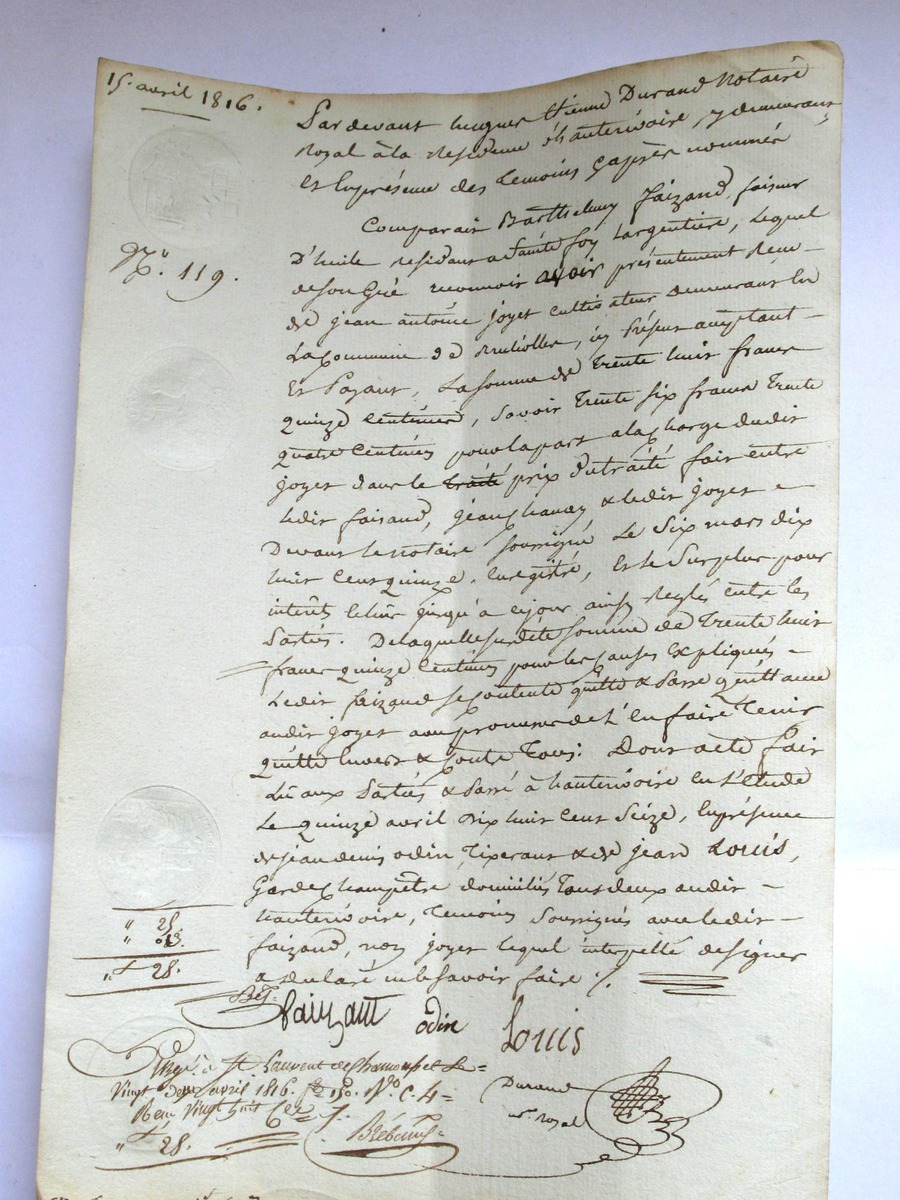 15. avril 1816.
Pardevant hugues Etienne Durand Notaire
Royal à la Residence d'hauterivoire, y demeurant
Et En présence des temoins Cy après nommés
Comparait Barthelemy faizand, faiseur
N.º 119.
D'huile residant a Sainte foy Largentiere, Lequel
de son Gré reconnoit avoir présentement Recu
de jean antoine joyet cultivateur demeurant En
La Commune de , icy Présent acceptant
Et Payant, La somme de trente huit francs
quinze Centimes, Savoir trente six francs trente
quatre Centimes pour la part a la Charge dudit
joyet dans le traité prix du traité fait entre
ledit faisand, jean & ledit joyet
Devant le notaire soussigné Le Six mars dix
huit Cent quinze, Enregistré, Et le Surplus pour
interêts jusqu'a ce jour ainsy Reglés entre les
Parties. De laquelle susdite somme de trente huit
francs quinze Centimes pour les Causes Expliquées
Ledit faizand se Contente quitte & Passe quittance
audit joyet avec promesse de L'en faire tenir
quitte Envers & Contre tous. Dont acte fait
Lu aux Parties & Passé à hauterivoire En L'étude
Le quinze avril dix huit Cent Seize, En présence
de jean denis odin, tixerant & de jean Louis,
Garde Champetre domiciliés tous deux audit
hauterivoire, temoins Soussignés avec ledit
faizand, non joyet lequel interpellé de signer
a declaré ne le Savoir faire ./.
" 25.
"
" 28.
faizant odin Louis
Enreg.é à St Laurent de Chamousset Le
Vingt deux avril 1816. fº 150. Nº. C. 4
Recu Vingt huit C.es
" 28.
Durand
n.re Royal